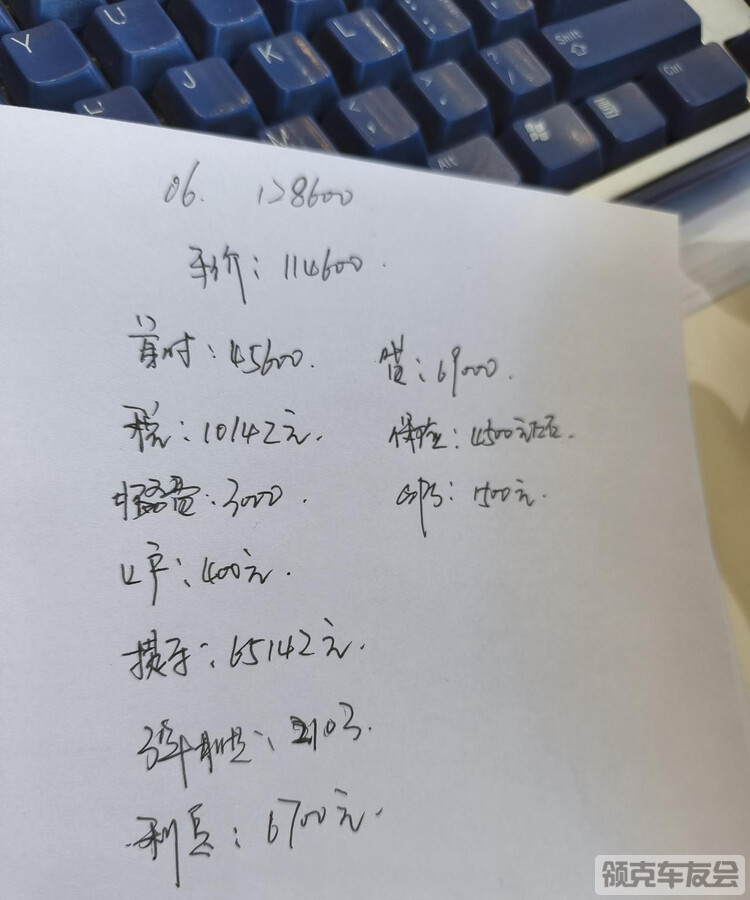 Y U
J K L
M
Shift
Alt
Ctrl
06. 128600
车价：114600.
首付：45600. 贷：69000.
税：10142元. 保险：4500元左右.
服务费：3000. GPS：1500元.
上户：400元.
提车：65142元.
月供：2103.
利息：6700元.
领克车友会